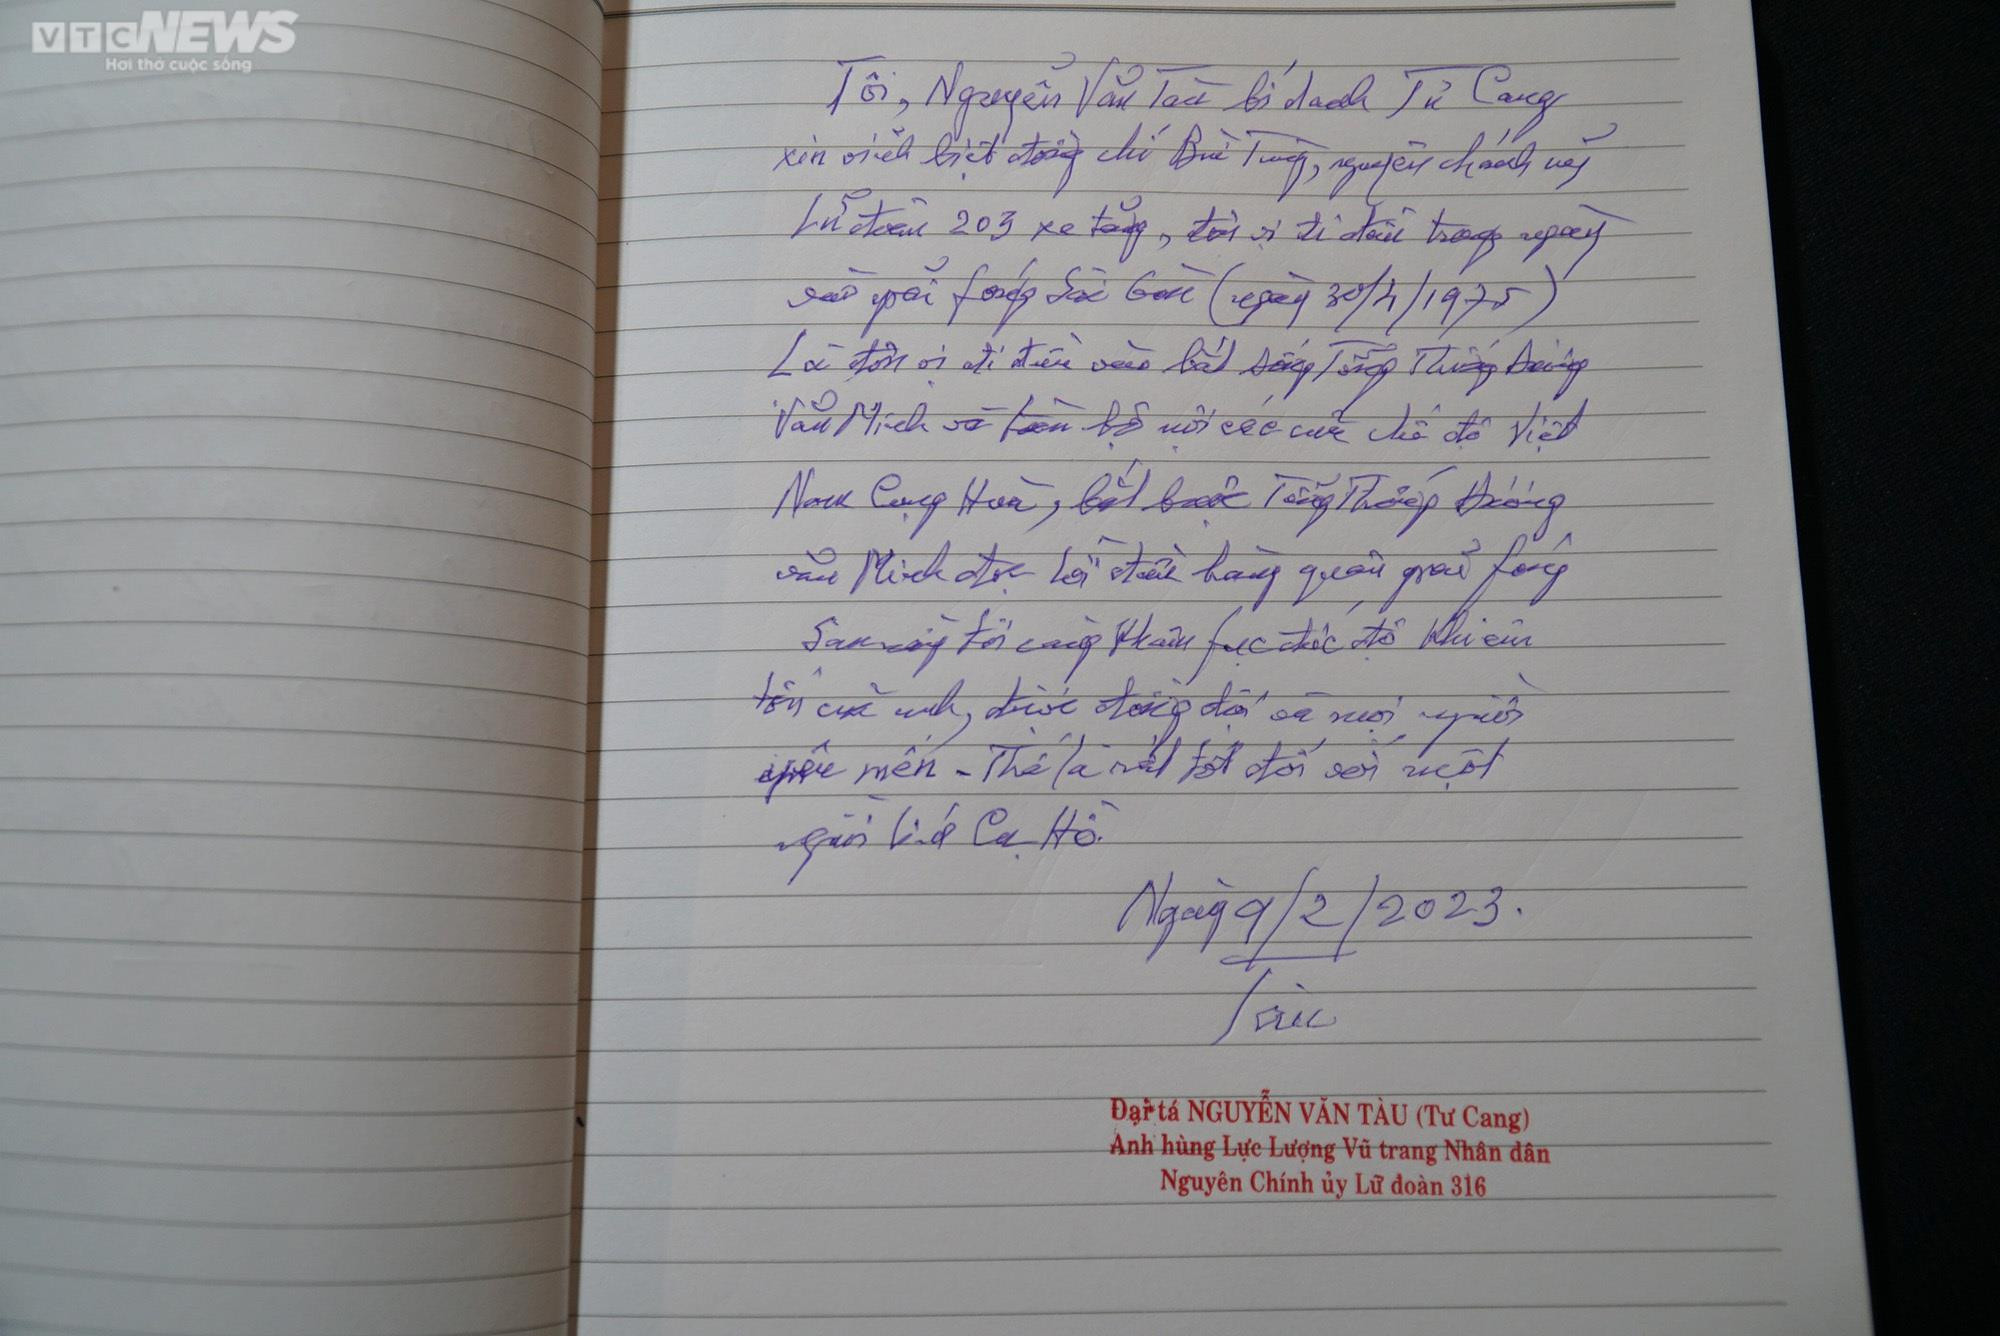 VTC NEWS
Hơi thở cuộc sống
Tôi, Nguyễn Văn Tàu bí danh Tư Cang
xin vĩnh biệt đồng chí Bùi Tùng, nguyên chính uỷ
Lữ đoàn 203 xe tăng, đơn vị đi đầu trong ngày
vào giải fóng Sài Gòn (ngày 30/4/1975)
Là đơn vị đi đầu vào bắt sống Tổng Thống Dương
Văn Minh và toàn bộ nội các của chế độ Việt
Nam Cộng Hoà, bắt buộc Tổng Thống Dương
văn Minh đọc lời đầu hàng quân giải fóng
tôi càng khâm fục đức độ khiêm
tốn của anh, được đồng đội và mọi người
yêu mến - Thế là rất tốt đối với một
người lính Cụ Hồ.
Ngày 9/2/2023.
Tàu
Đại tá NGUYỄN VĂN TÀU (Tư Cang)
Anh hùng Lực Lượng Vũ trang Nhân dân
Nguyên Chính ủy Lữ đoàn 316